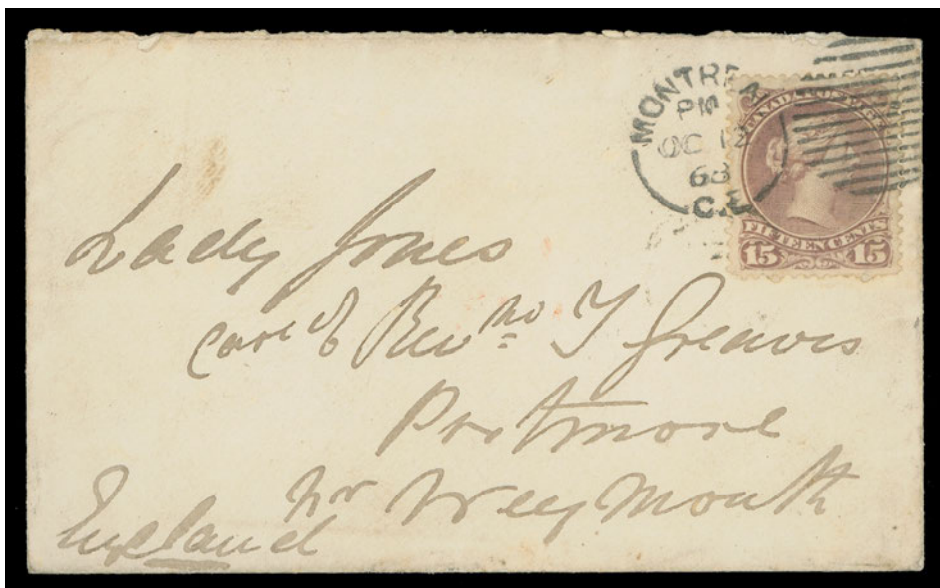 MONTREAL
PM
OC 12
68
C.E
CANADA POSTAGE
FIFTEEN CENTS
15 15
Lady Jones
care of Revd T Greaves
Portmore
nr Weymouth
England